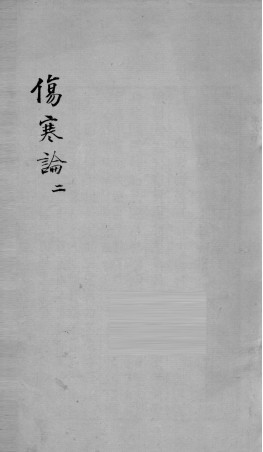 傷寒論 二